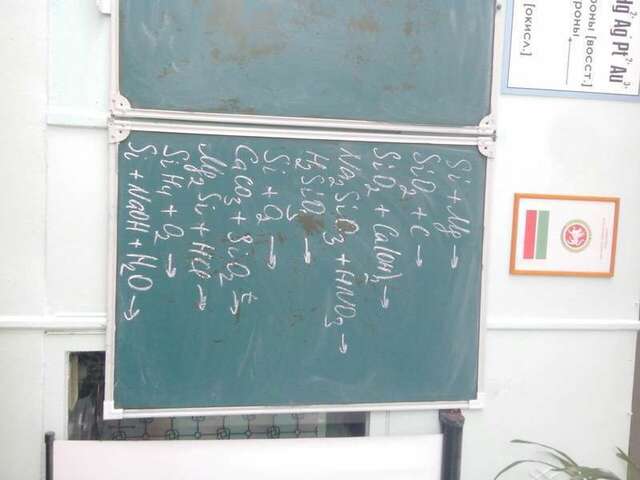 Hg²⁺ Ag⁺ Pt²⁺ Au³⁺
роны [восст.]
роны
[окисл.]
Si + Mg →
SiO₂ + C →
SiO₂ + Ca(OH)₂ →
Na₂SiO₃ + HNO₃ →
H₂SiO₃ →
Si + O₂ →
CaCO₃ + SiO₂ t→
Mg₂Si + HCl →
SiH₄ + O₂ →
Si + NaOH + H₂O →